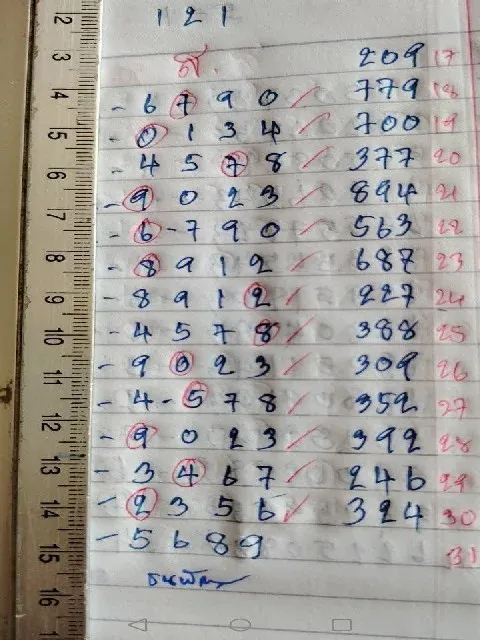 1 2 1
ส. 209 17
- 6 7 9 0 / 779 18
- 0 1 3 4 / 700 19
- 4 5 7 8 / 377 20
- 9 0 2 3 / 894 21
- 6 - 7 9 0 / 563 22
- 8 9 1 2 / 687 23
- 8 9 1 2 / 227 24
- 4 5 7 8 / 388 25
- 9 0 2 3 / 309 26
- 4 - 5 7 8 / 352 27
- 9 0 2 3 / 392 28
- 3 4 6 7 / 246 29
- 2 3 5 6 / 324 30
- 5 6 8 9 31
2
3
4
5
6
7
8
9
10
11
12
13
14
15
16